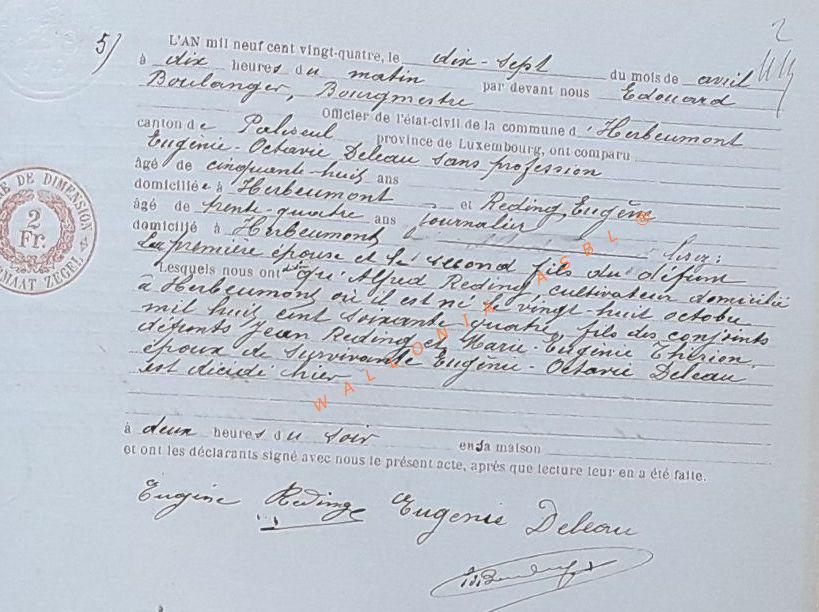 2
5)
L'AN mil neuf cent vingt-quatre, le dix-sept du mois de avril
à dix heures du matin par devant nous Edouard
Boulanger, Bourgmestre
Officier de l'état-civil de la commune d'Herbeumont
canton de Paliseul province de Luxembourg, ont comparu
Eugénie-Octavie Deleau sans profession
âgé de cinquante-huit ans
domiciliée à Herbeumont et Reding, Eugène
âgé de trente-quatre ans journalier
domicilié à Herbeumont Lisez:
La première épouse et le second fils du défunt
Lesquels nous ont dit qu'Alfred Reding, cultivateur domicilié
à Herbeumont où il est né le vingt-huit octobre
mil huit cent soixante quatre, fils des conjoints
défunts Jean Reding et Marie-Eugénie Thérion,
époux de survivante Eugénie-Octavie Deleau
est décédé hier
à deux heures du soir en sa maison
et ont les déclarants signé avec nous le présent acte, après que lecture leur en a été faite.
Eugène Reding Eugenie Deleau
E DE DIMENSION
2
Fr.
MAAT ZEGEL
WALLONIA ASBL ©